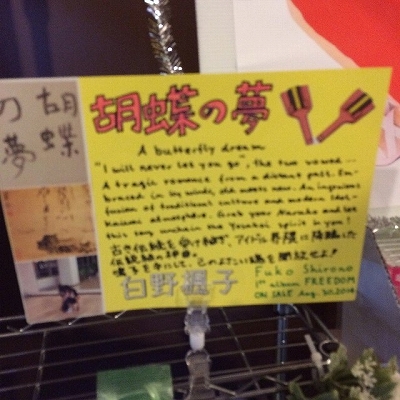 胡蝶
の夢
胡蝶の夢
A butterfly dream
"I will never let you go", the two vowed...
A tragic romance from a distant past. Em-
braced in icy winds, old meets new. An ingenious
fusion of traditional culture and modern Idol-
Kaiwai atmosphere. Grab your Naruko and let
this song unchain the Yosakoi spirit in you!
古き伝統を受け継ぎ、アイドル界隈に降臨した
鳴子を手にして、このよさこい魂を開放せよ!
白野楓子
Fuko Shirono
1st album FREEDOM
ON SALE Aug. 30.2014